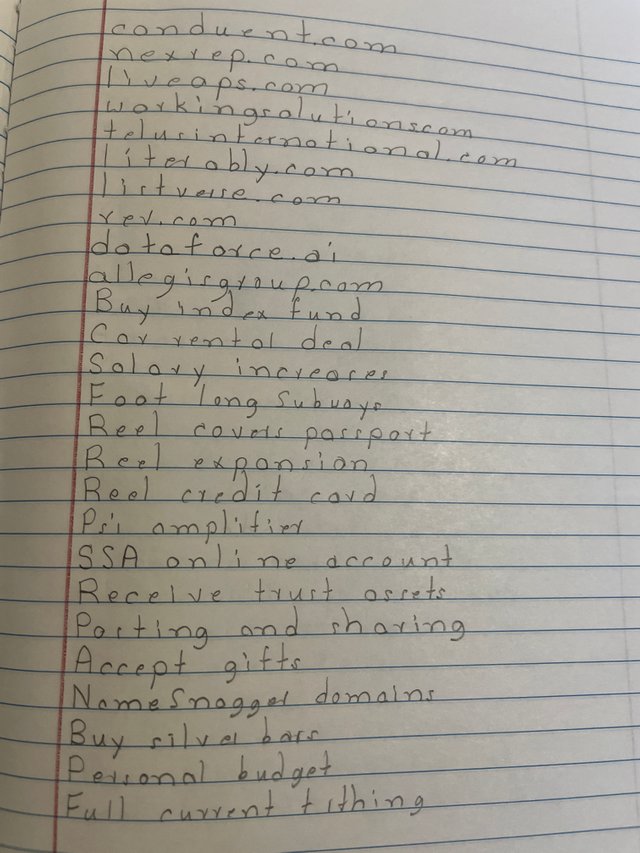 conduent.com
nexrep.com
liveops.com
workingsolutionscom
telusinternational.com
literably.com
listverse.com
rev.com
dataforce.ai
allegisgroup.com
Buy index fund
Car rental deal
Salary increases
Foot long Subways
Reel covers passport
Reel expansion
Reel credit card
Psi amplifier
SSA online account
Receive trust assets
Posting and sharing
Accept gifts
NameSnagger domains
Buy silver bars
Personal budget
Full current tithing